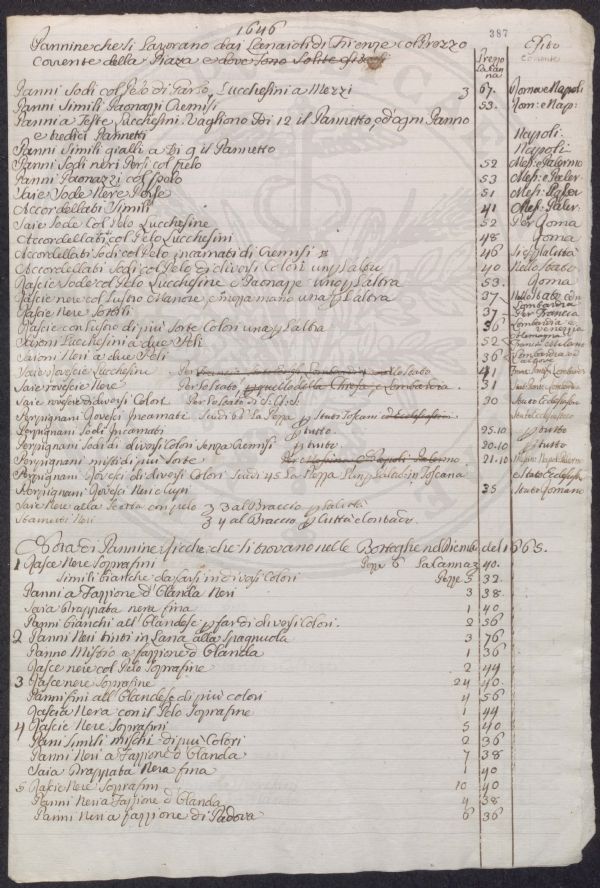 1646
387
Pannine che si Lavorano dai Lanaioli di Firenze col Prezzo
Corrente della Piaza e dove sono Solite
Prezzo La Canna
Esito Corrente
Panni Sodi col Pelo di Garzo, Lucchesini a Mezzi 3 67. Roma e Napoli
Panni Simili Paonazzi Cremisi 53. Rom: e Nap:
Panni a Teste Lucchesini. Vagliono 12 il Pannetto, ed ogni Panno
e tredici Pannetti Napoli.
Panni Simili gialli a 9 il Pannetto Napoli.
Panni Sodi neri Persi col pelo 52 Mess: e Palermo
Panni Paonazzi col pelo 53 Mess: e Paler
Saie Sode Nere Perse 51 Mess: Paler
Accordellati Simili 41 Mess: Paler:
Saie Sode col Pelo Lucchesine 52 Per Roma
Accordellati col Pelo Lucchesini 48 Roma
Accordellati Sodi col Pelo incarnati di Cremisi 46
Accordellati Sodi col Pelo di diversi Colori un p l'altro 40 Nello Stato
Rascie Sode col Pelo Lucchesine e Paonazze una p l'altra 53 Roma
Rascie nere col lustro e una p l'altra 37 Nello Stato con Lombardia
Rascie Nere Sottili 37 Per Francia
Rascie con lustro di più Sorte Colori una p l'altra 36 Lombardia e venezia
Saioni Lucchesini a due Peli 52
Saioni Neri a due Peli 36 Lombardia
Saie rovescie Lucchesine 41
Saie rovescie Nere Per lo stato, 31 Lombardia
Saie rovescie di diversi Colori Per lo Stato di S. A. S. 30 Stato Ecclesiastico
Perpignani Rovesci Incarnati Scudi 60 La Pezza p Stato Toscano Stato Ecclesiastico
Perpignani Sodi Incarnati p tutto 25.10 p tutto
Perpignani Sodi di diversi Colori Senza Cremisi p tutto 20.10 p tutto
Perpignani misti di più Sorte Per Messina e Napoli Palermo 21.10
Perpignani Rovesci di diversi Colori Scudi 45 La Pezza l'un p l'altro in Toscana e Stato Ecclesiastico
Perpignani Rovesci Neri cupi 35 Stato Romano
Saie Nere alla con pelo 3 al Braccio
Stametti Neri 4 al Braccio p Città e Contado.
Nota di Pannine Ricche che si trovano nelle Botteghe nel Dicemb. del 1665.
1 Rasce Nere Soprafini Pezze 6 La Canna 40.
Simili bianche da farsi in diversi Colori Pezze 5 32.
Panni a Fazzione d'Olanda Neri 3 38.
Saia Drappata nera fina 1 40
Panni bianchi all'Olandese p farsi di diversi Colori. 2 36
2 Panni Neri tinti in Lana alla Spagnuola 3 76
Panno Mistio a fazzione d'Olanda 1 36
Rasce nere col Pelo Soprafine 2 44
3 Rasce nere Soprafine 24 40
Panni fini all'Olandese di più colori 4 56
Rascia Nera con il Pelo Soprafine 1 44
4 Rascie Nere Soprafini 5 40
Pani Simili mischi di più Colori 2 36
Panni Neri a Fazzione d'Olanda 7 38
Saia Drappata Nera fina 1 40
5 Rascie Nere Soprafini 10 40
Panni Neri a Fazzione d'Olanda 4 38
Panni Neri a fazzione di Padova 6 36